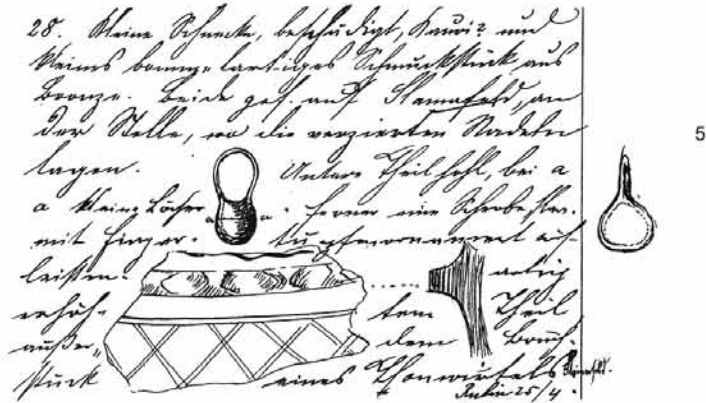 28. Kleine Schnecke, beschädigt, Kauri? und
kleines bommelartiges Schmuckstück aus
Bronze. Beide gef. auf, an
der Stelle, wo die verzierten Nadeln
lagen. Untere Theil hohl, bei a
a kleine Löcher. Ferner eine Scherbe
mit Finger- tupfenornament auf
leisten-artig
erhöh-tem Theil
außer-dem Bruch-
stück eines Thonwirtels
25/4.
5